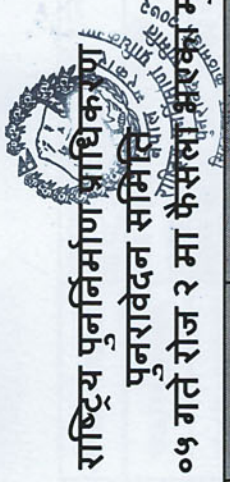 राष्ट्रिय पुनर्निर्माण प्राधिकरण
पुनरावेदन समिति
०५ गते रोज २ मा फैसला भएका